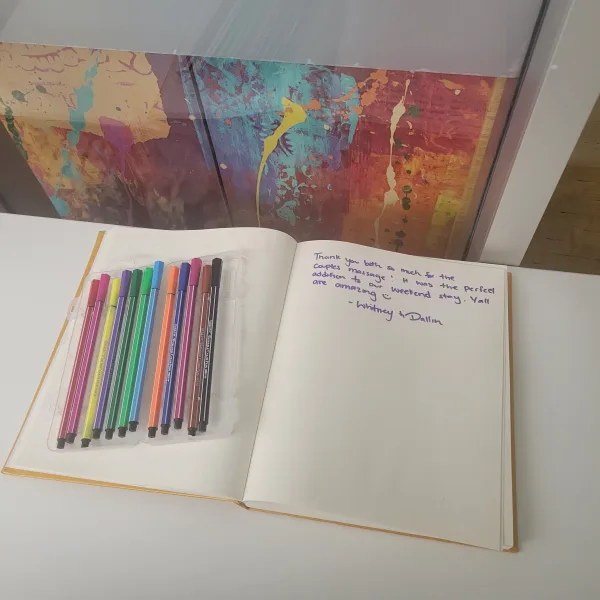 Thank you both so much for the
couples massage! It was the perfect
addition to our weekend stay. Yall
are amazing
- Whitney & Dallin